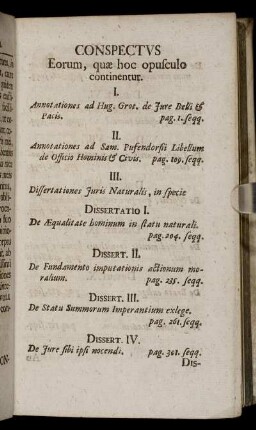 CONSPECTVS
Eorum, quæ hoc opusculo
continentur.
I.
Annotationes ad Hug. Grot. de Jure Belli &
Pacis. pag. 1. seqq.
II.
Annotationes ad Sam. Pufendorfii Libellum
de Officio Hominis & Civis. pag. 109. seqq.
III.
Dissertationes Juris Naturalis, in specie
DISSERTATIO I.
De Æqualitate hominum in statu naturali.
pag. 204. seqq.
DISSERT. II.
De Fundamento imputationis actionum mo-
ralium. pag. 235. seqq.
DISSERT. III.
De Statu Summorum Imperantium exlege.
pag. 261. seqq.
DISSERT. IV.
De Jure sibi ipsi nocendi. pag. 301. seqq.
Dis-